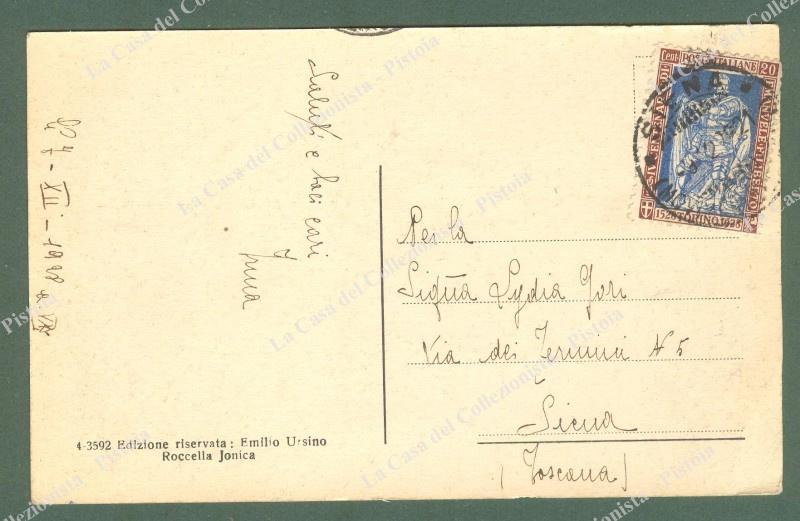 Saluti e baci cari
Irma
4-3592 Edizione riservata: Emilio Ursino
Roccella Jonica
Per la
Sig.na Lydia Gori
Via dei Termini N 5
Siena
(Toscana)
Cent POSTE ITALIANE 20
EMANUELE FILIBERTO
IV CENTENARIO DI
1528 TORINO 1928
La Casa del Collezionista - Pistoia